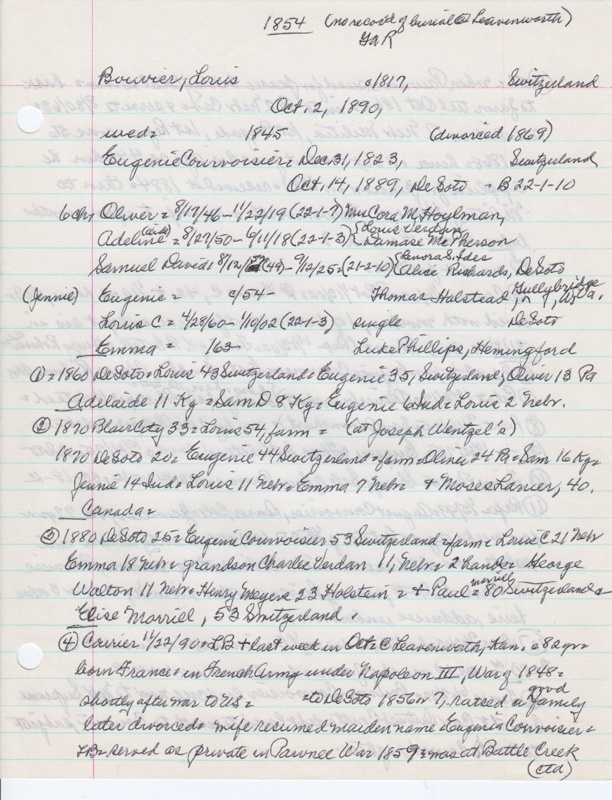 1854 (no record of burial at Leavenworth)
GaR
Bouvier, Louis c1817, Switzerland
Oct. 2, 1890,
wed= 1845 (divorced 1869)
Eugenie Courvoisier= Dec. 31, 1823, Switzerland
Oct, 14, 1889, DeSoto - B 22-1-10
6 chn Oliver= 8/17/46-11/22/19 (22-1-7) Mrs Cora M. Hoylman,
Louis Verdan
Adeline = 8/27/50-6/11/18 (22-1-3) Damase McPherson
Samuel David= 8/12/ (49)-9/12/25= (21-2-10) Alice Richards, DeSoto
(Jennie) Eugenie= c/54- Thomas Halstead, Hullybridge, W Va.
Louis C= 4/28/60-1/10/02 (22-1-3) single DeSoto
Emma= /63- Luke Phillips, Hemingford
① =1860 DeSoto= Louis 43 Switzerland= Eugenie 35, Switzerland, Oliver 13 Pa
Adelaide 11 Ky= Sam D 8 Ky= Eugenie 6 Ind= Louis 2 Nebr.
② 1870 Blair City 33= Louis 54, farm= (at Joseph Wentzel's)
1870 DeSoto 20= Eugenie 44 Switzerland= farm= Oliver 24 Pa= Sam 16 Ky=
Jennie 14 Ind= Louis 11 Nebr= Emma 7 Nebr= + Moses Lancer, 40.
Canada=
③ 1880 DeSoto 25= Eugenie Courvoisier 53 Switzerland= farm= Louis C 21 Nebr
Emma 18 Nebr= grandson Charlie Verdan 11, Nebr= 2 hands= George
Walton 11 Nebr= Henry 23 Holstein= + Paul Morriel= 80 Switzerland=
Elise Morriel, 52 Switzerland.
④ Courier 11/22/90= LB + last week in Oct= @ Leavenworth, Kan. = 82 yr=
born France= in French Army under Napoleon III, War of 1848=
shortly after war to US= =to DeSoto 1856 or 7, raised a good family
later divorced= wife resumed maiden name= Eugenia Courvoisier=
LB= served as private in Pawnee War 1859= was at Battle Creek
(ctd)